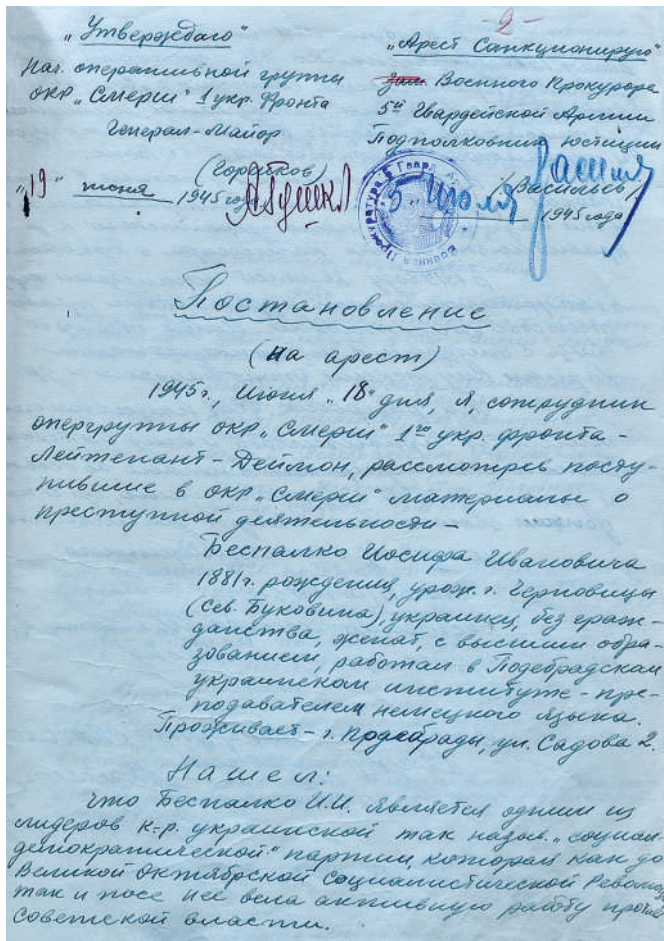 - 2 -
„Утверждаю"
Нач. оперативной группы
окр „Смерш" 1 укр. Фронта
Генерал-Майор
„19" июня 1945 год
„Арест Санкционирую"
Зам. Военного Прокурора
5й Гвардейской Армии
Подполковник юстиции
(Васильев)
5 Июля 1945 года
Постановление
(на арест)
1945г., Июня „18" дня, я, сотрудник
опергруппы окр „Смерш" 1го укр. фронта –
Лейтенант – Деймон, рассмотрев посту-
пившие в окр „Смерш" материалы о
преступной деятельности –
Беспалко Иосифа Ивановича
1881г. рождения, урож. г. Черновицы
(сев. Буковина), украинец, без граж-
данства, женат, с высшим обра-
зованием, работал в Подебрадском
украинском институте – пре-
подавателем немецкого языка.
Проживает – г. Подебрады, ул. Садова 2.
Нашел:
Что Беспалко И.И. является одним из
лидеров к-р. украинской так назыв. „социал-
демократической" партии, которая как до
Великой Октябрской Социалистической Револю
так и посе нее вела активную работу против
Советской власти.